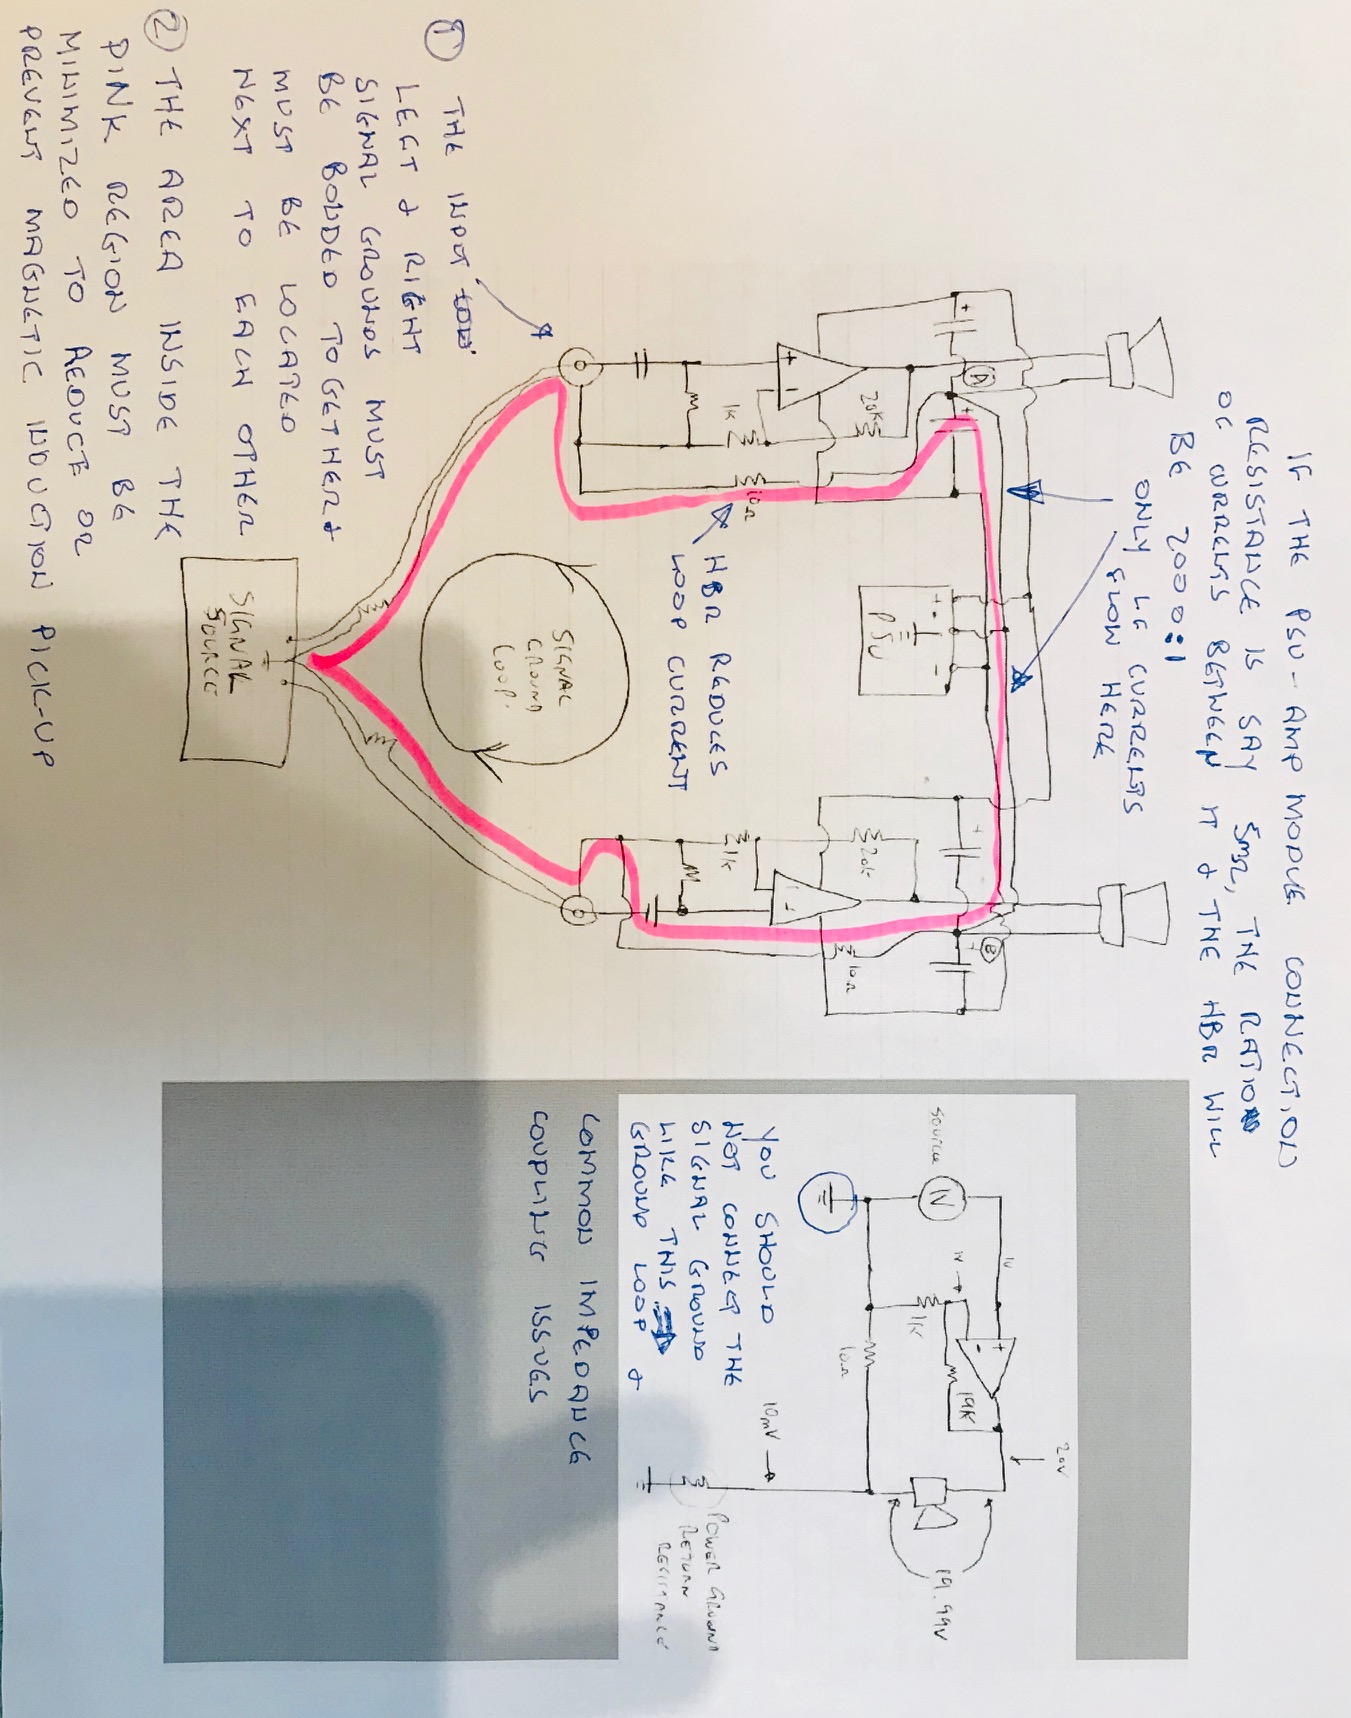 IF THE PSU-AMP MODULE CONNECTION
RESISTANCE IS SAY 5mΩ, THE RATIO
OF CURRENTS BETWEEN IT & THE HBR WILL
BE 2000:1
ONLY LF CURRENTS
FLOW HERE
HBR REDUCES
LOOP CURRENT
A
+
+
+
-
20K
1K
10Ω
PSU
+
-
SIGNAL
GROUND
LOOP.
SIGNAL
SOURCE
+
20K
1K
10Ω
B
1 THE INPUT
LEFT & RIGHT
SIGNAL GROUNDS MUST
BE BONDED TOGETHER &
MUST BE LOCATED
NEXT TO EACH OTHER
2 THE AREA INSIDE THE
PINK REGION MUST BE
MINIMIZED TO REDUCE OR
PREVENT MAGNETIC INDUCTION PICK-UP
SOURCE
1V
1V
1V
+
-
19K
1K
10Ω
20V
19.99V
10mV
POWER GROUND
RETURN
RESISTANCE
YOU SHOULD
NOT CONNECT THE
SIGNAL GROUND
LIKE THIS
GROUND LOOP &
COMMON IMPEDANCE
COUPLING ISSUES